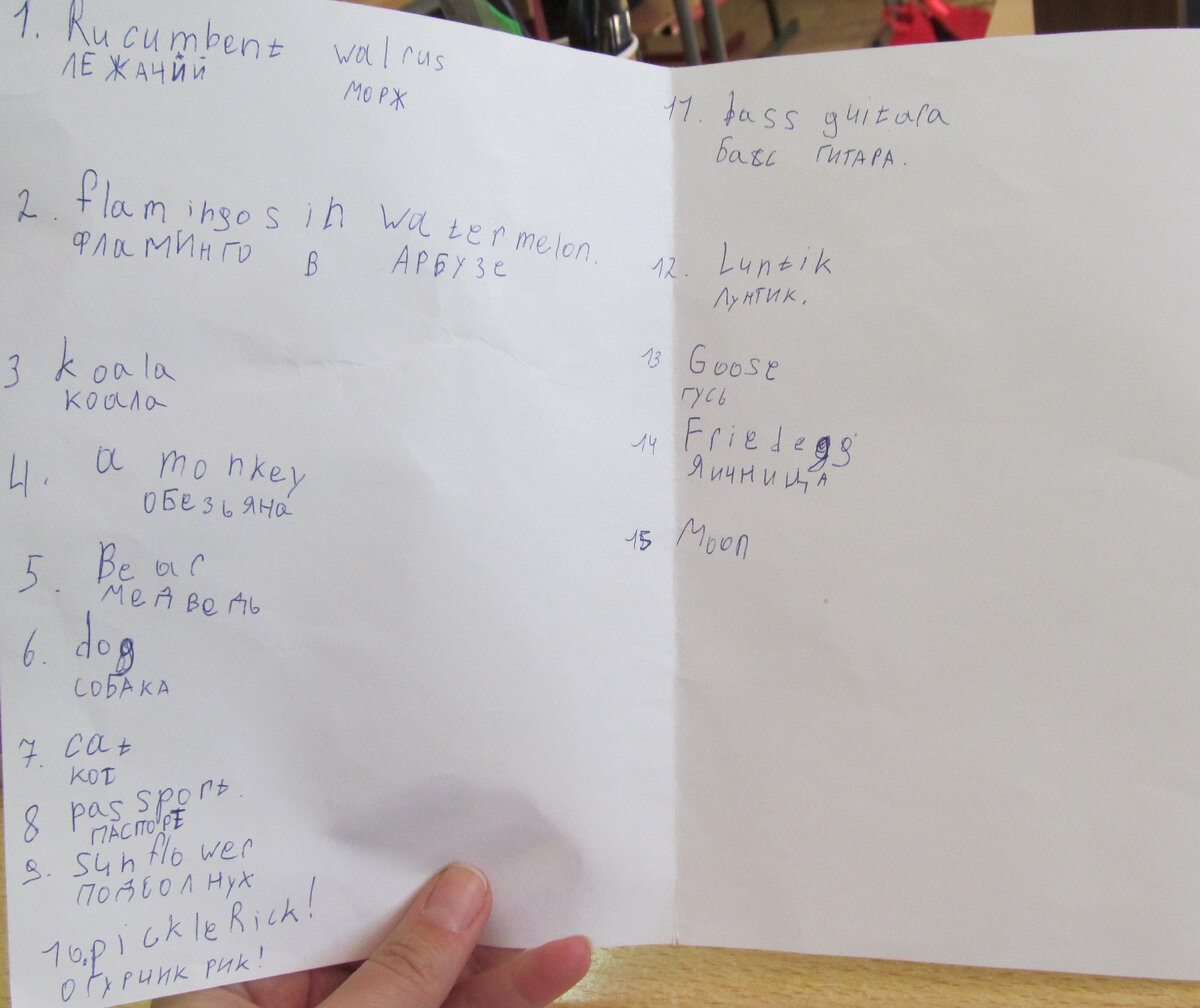 1. Rucumbent walrus
ЛЕЖАЧИЙ МОРЖ
2. flamingos in watermelon.
ФЛаМИНГО В АРБУЗе
3 koala
коала
4. a monkey
ОБЕЗЬЯНа
5. Bear
медведь
6. dog
СОБАКА
7. cat
КОТ
8 passport.
ПАСПОРТ
9. sunflower
ПОДСОЛНУХ
10. pickleRick!
ОГУРЧИК РИК!
11. bass guitara
Басс ГИТАРА.
12. Luntik
ЛУНТИК.
13 Goose
ГУСЬ
14 Friedegg
ЯИЧНИЦА
15 Moon